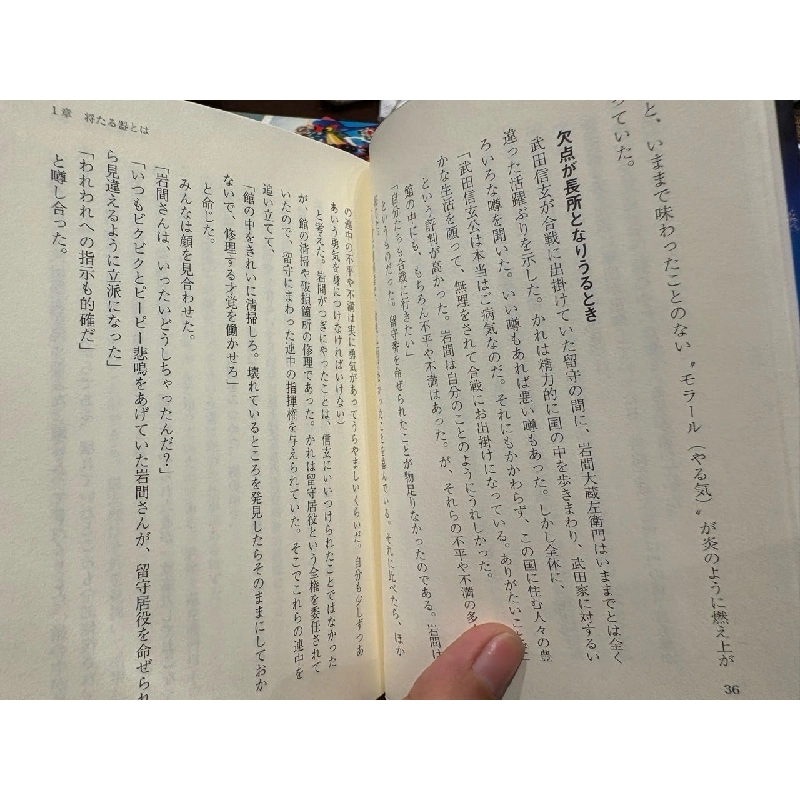 と、いままで味わったことのない〝モラール（やる気）〟が炎のように燃え上が
っていた。
欠点が長所となりうるとき
武田信玄が合戦に出掛けていた留守の間に、岩間大蔵左衛門はいままでとは全く
違った活躍ぶりを示した。かれは精力的に国の中を歩きまわり、武田家に対するい
ろいろな噂を聞いた。いい噂もあれば悪い噂もあった。しかし全体に、
「武田信玄公は本当はご病気なのだ。それにもかかわらず、この国に住む人々の豊
かな生活を願って、無理をされて合戦にお出掛けになっている。ありがたいこ
という評判が高かった。岩間は自分のことのようにうれしかった。
館の中にも、もちろん不平や不満はあった。が、それらの不平や不満の多
「自分たちも合戦に行きたい」
というものだった。留守番を命ぜられたことが物足りなかったのである。岩間は
んでいる。それに比べたら、ほか
36
1章 将たる器とは
の連中の不平や不満は実に勇気があってうらやましいくらいだ。自分も少しずつあ
あいう勇気を身につけなければいけない）
と考えた。岩間がつぎにやったことは、信玄にいいつけられたことではなかった
が、館の清掃や破損箇所の修理であった。かれは留守居役という全権を委任されて
いたので、留守にまわった連中の指揮権を与えられていた。そこでこれらの連中を
追い立てて、
「館の中をきれいに清掃しろ。壊れているところを発見したらそのままにしておか
ないで、修理する才覚を働かせろ」
と命じた。
みんなは顔を見合わせた。
「岩間さんは、いったいどうしちゃったんだ？」
「いつもビクビクとピーピー悲鳴をあげていた岩間さんが、留守居役を命ぜられ
ら見違えるように立派になった」
「われわれへの指示も的確だ」
と噂し合った。